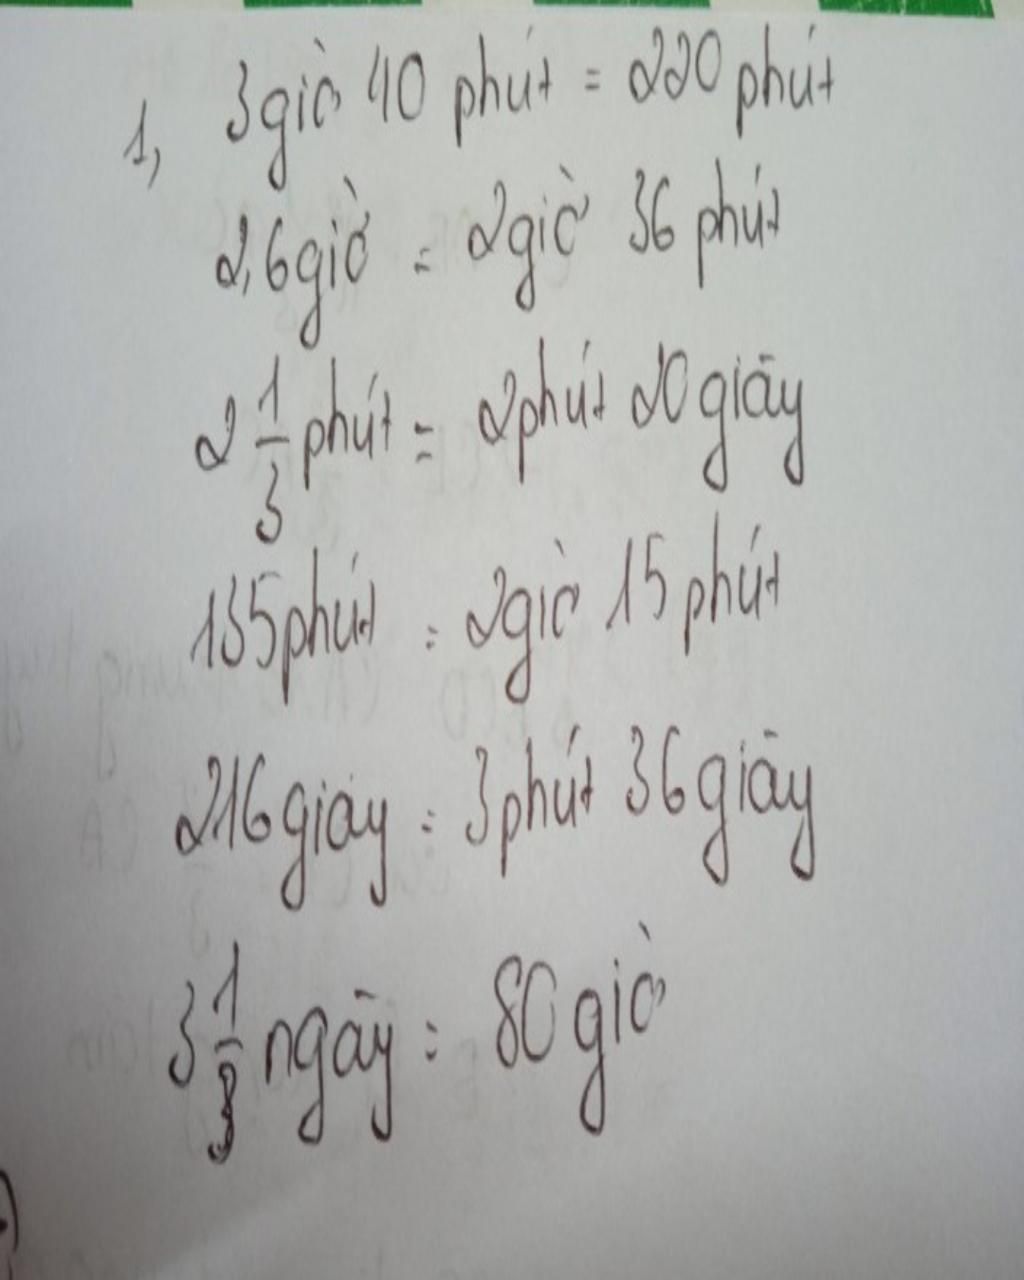 1, 3 giờ 40 phút = 220 phút
2,6 giờ = 2 giờ 36 phút
2 1/3 phút = 2 phút 20 giây
135 phút = 2 giờ 15 phút
216 giây = 3 phút 36 giây
3 1/3 ngày = 80 giờ